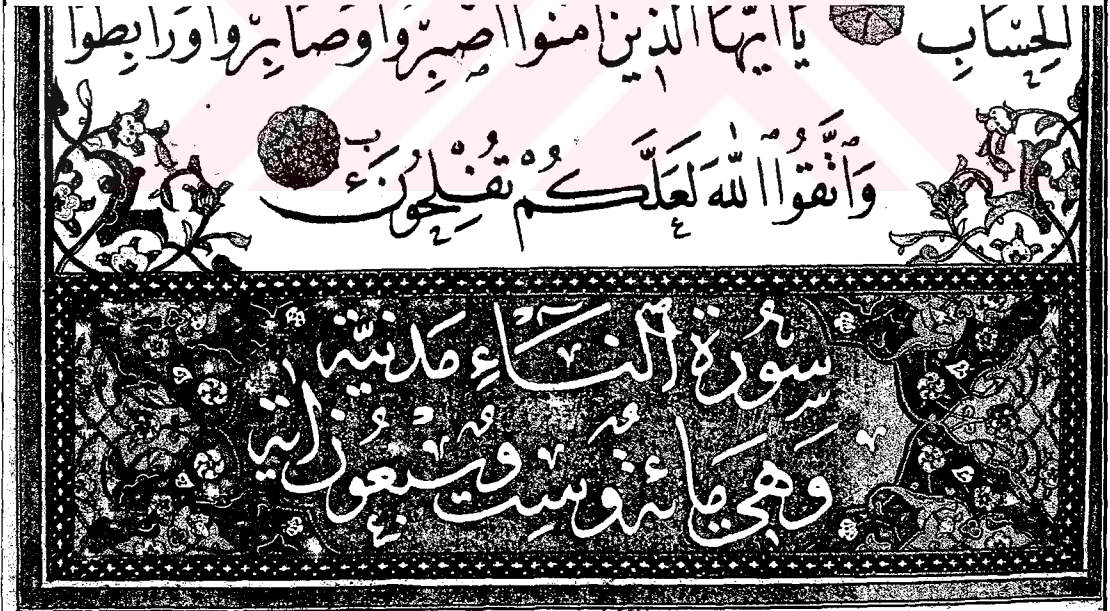 الْحِسَابِ يَا أَيُّهَا الَّذِينَ آمَنُوا اصْبِرُوا وَصَابِرُوا وَرَابِطُوا
وَاتَّقُوا اللَّهَ لَعَلَّكُمْ تُفْلِحُونَ
سُورَةُ النِّسَاءِ مَدَنِيَّة
وَهِيَ مِائَة وَسِتٌّ وَسَبْعُونَ آيَة